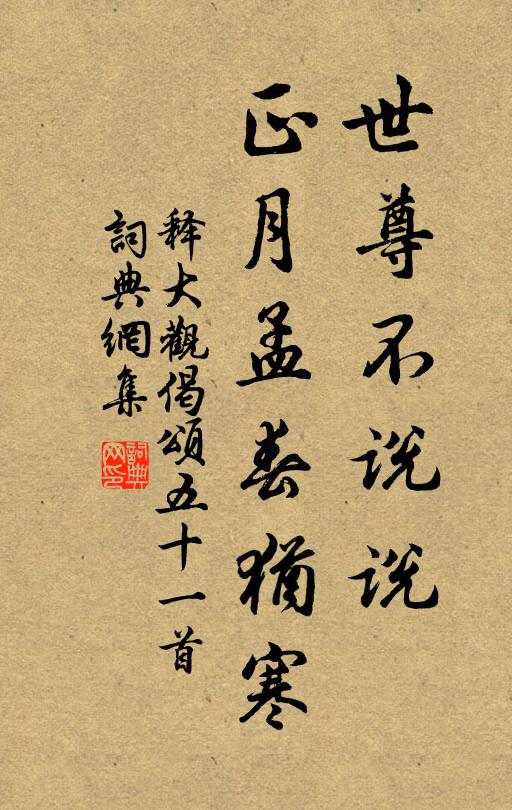 世尊不说说
正月孟春猶寒
释大觀偈頌五十一首
詞典網集
詞典网印